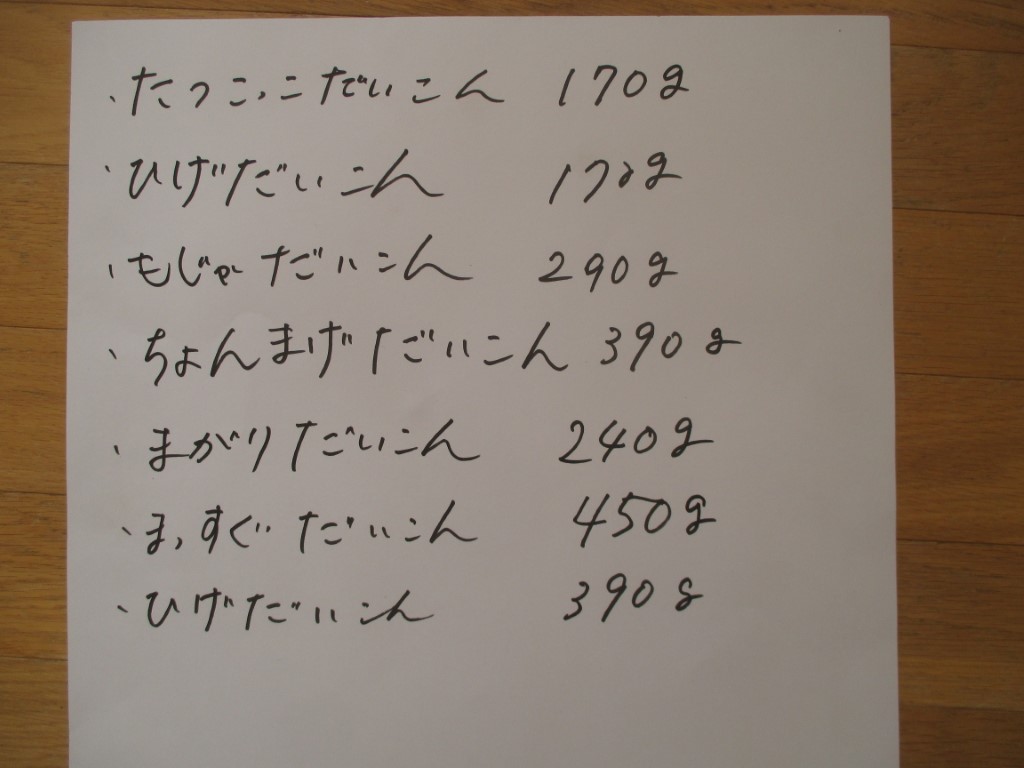 ・たっこっこだいこん 170g
・ひげだいこん 170g
・もじゃだいこん 290g
・ちょんまげだいこん 390g
・まがりだいこん 240g
・まっすぐだいこん 450g
・ひげだいこん 390g